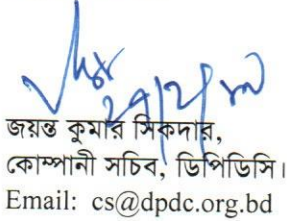 জয়ন্ত কুমার সিকদার,
কোম্পানী সচিব, ডিপিডিসি।
Email: cs@dpdc.org.bd